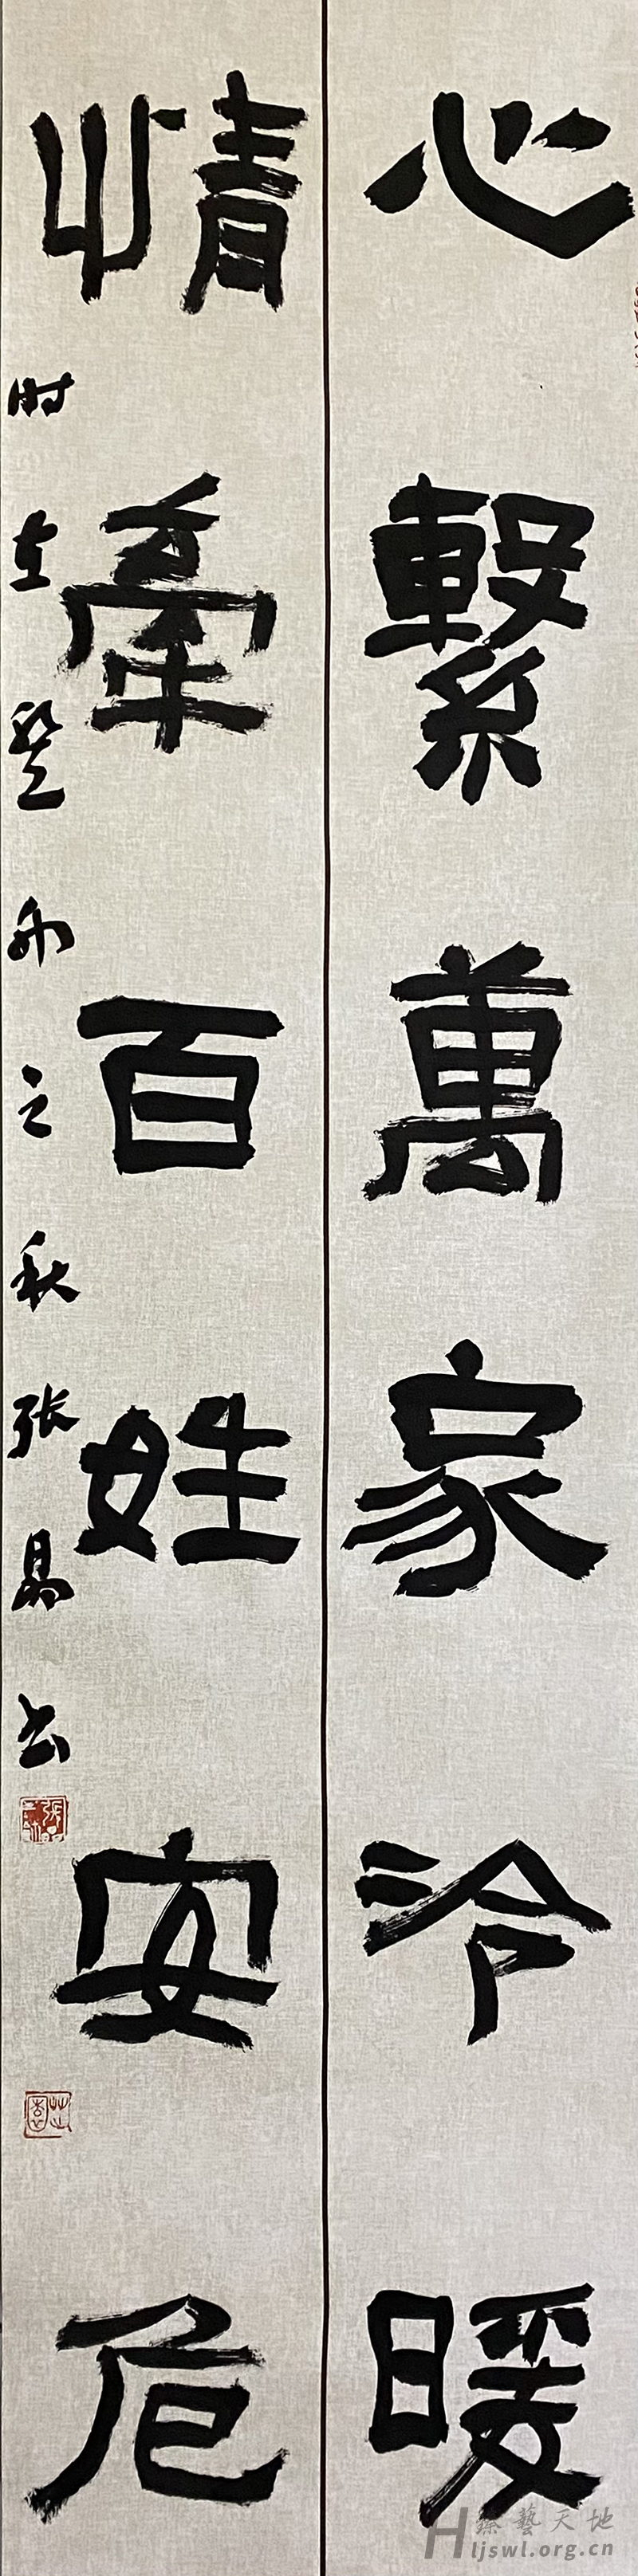 心繫萬家冷暖
情牽百姓安危
时在癸卯之秋张易书
龙艺天地
ljswl.org.cn